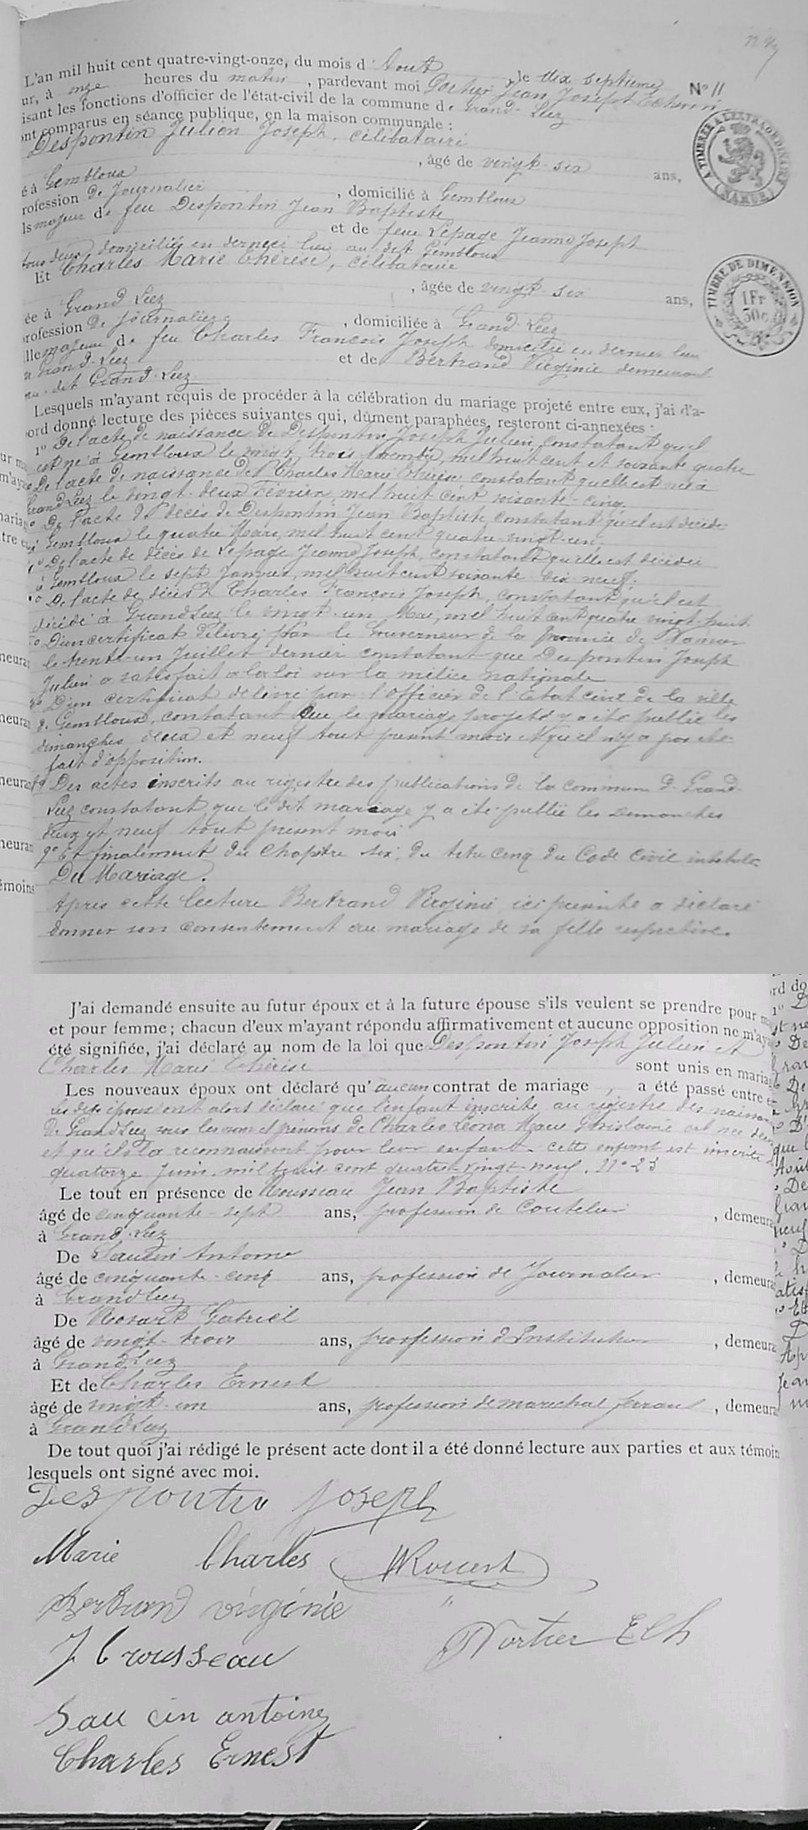 L'an mil huit cent quatre-vingt-onze, du mois d'Aout le dix septième N° 11
ur, à onze heures du matin, pardevant moi Jean Joseph
isant les fonctions d'officier de l'état-civil de la commune de Grand-Leez
ont comparus en séance publique, en la maison communale :
Despontin Julien Joseph, célibataire
, âgé de vingt-six ans,
é à Gembloux
rofession de Journalier , domicilié à Gembloux
ls majeur de feu Despontin Jean Baptiste
et de feue Lepage Jeanne Joseph
tous deux domiciliés en dernier lieu au dit Gembloux
Et Charles Marie Thérèse, célibataire
, âgée de vingt-six ans,
ée à Grand Leez
rofession de journalière , domiciliée à Grand Leez
lle majeure de feu Charles François Joseph domicilié en dernier lieu
à Grand-Leez et de Bertrand Virginie demeurant
au dit Grand-Leez
Lesquels m'ayant requis de procéder à la célébration du mariage projeté entre eux, j'ai d'a-
ord donné lecture des pièces suivantes qui, dûment paraphées, resteront ci-annexées :
1° De l'acte de naissance de Despontin Joseph Julien, constatant qu'il
est né à Gembloux le vingt trois mil huit cent et soixante quatre
De l'acte de naissance de Charles Marie Thérèse constatant qu'elle est née à
Grand Leez le vingt-deux Février mil huit cent soixante-cinq
De l'acte de décès de Despontin Jean Baptiste constatant qu'il est décédé
à Gembloux le quatre Mars, mil huit cent quatre-vingt-un
De l'acte de décès de Lepage Jeanne Joseph, constatant qu'elle est décédée
à Gembloux le sept Janvier, mil huit cent soixante dix neuf
De l'acte de décès de Charles François Joseph, constatant qu'il est
décédé à Grand Leez le vingt-un Mai, mil huit cent quatre vingt huit
D'un certificat délivré par le Gouverneur de la province de Namur
le trente-un Juillet dernier constatant que Despontin Joseph
Julien a satisfait a la loi sur la milice nationale
D'un certificat délivré par l'officier de l'Etat civil de la ville
de Gembloux, constatant que le mariage projeté y a été publié les
dimanches deux et neuf aout présent mois et qu'il n'y a pas été
fait d'opposition.
Des actes inscrits au registre des publications de la commune de Grand-
Leez constatant que le dit mariage y a été publié les Dimanches
deux et neuf aout présent mois
9° Et finalement du Chapitre six, du titre cinq du Code Civil intitulé
Du Mariage.
Après cette lecture Bertrand Virginie ici présente a déclaré
donner son consentement au mariage de sa fille respective.
J'ai demandé ensuite au futur époux et à la future épouse s'ils veulent se prendre pour
et pour femme ; chacun d'eux m'ayant répondu affirmativement et aucune opposition ne m'aya
été signifiée, j'ai déclaré au nom de la loi que Despontin Joseph Julien et
Charles Marie Thérèse sont unis en maria
Les nouveaux époux ont déclaré qu'aucun contrat de mariage a été passé entre e
les dits époux ont alors déclaré que l'enfant inscrite au registre des naissan
de Grand Leez sous les nom et prénoms de Charles Léona Marie Ghislaine est née
et qu'ils la reconnaissent pour leur enfant. cette enfant est inscrite
quatorze Juin mil huit cent quatre vingt-neuf. N° 23
Le tout en présence de Rousseau Jean Baptiste
âgé de cinquante-sept ans, profession de Coutelier , demeura
à Grand-Leez
De Saucin Antoine
âgé de cinquante-cinq ans, profession de Journalier , demeura
à Grand Leez
De Gabriel
âgé de vingt-trois ans, profession d'Instituteur , demeura
à Grand Leez
Et de Charles Ernest
âgé de vingt-un ans, profession de maréchal ferrant , demeura
à Grand Leez
De tout quoi j'ai rédigé le présent acte dont il a été donné lecture aux parties et aux témoin
lesquels ont signé avec moi.
Despontin Joseph
Marie Charles
Bertrand virginie
J B rousseau
Sau cin antoine
Charles Ernest
A TIMBRER A L'EXTRAORDINAIRE
(NAMUR)
TIMBRE DE DIMENSION
1 Fr
30 c